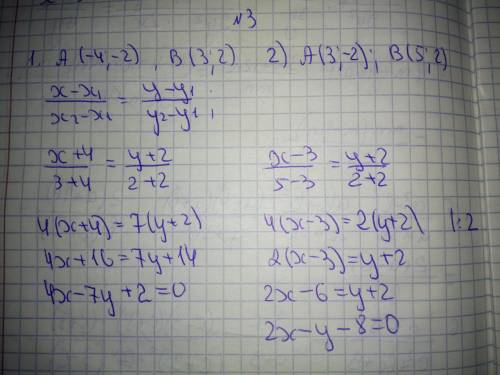 №3
1. A (-4;-2) , B (3;2) 2) A(3;-2); B(5;2)
(x-x₁)/(x₂-x₁) = (y-y₁)/(y₂-y₁);
(x+4)/(3+4) = (y+2)/(2+2) (x-3)/(5-3) = (y+2)/(2+2)
4(x+4)=7(y+2) 4(x-3)=2(y+2) |:2
4x+16=7y+14 2(x-3)=y+2
4x-7y+2=0 2x-6=y+2
2x-y-8=0